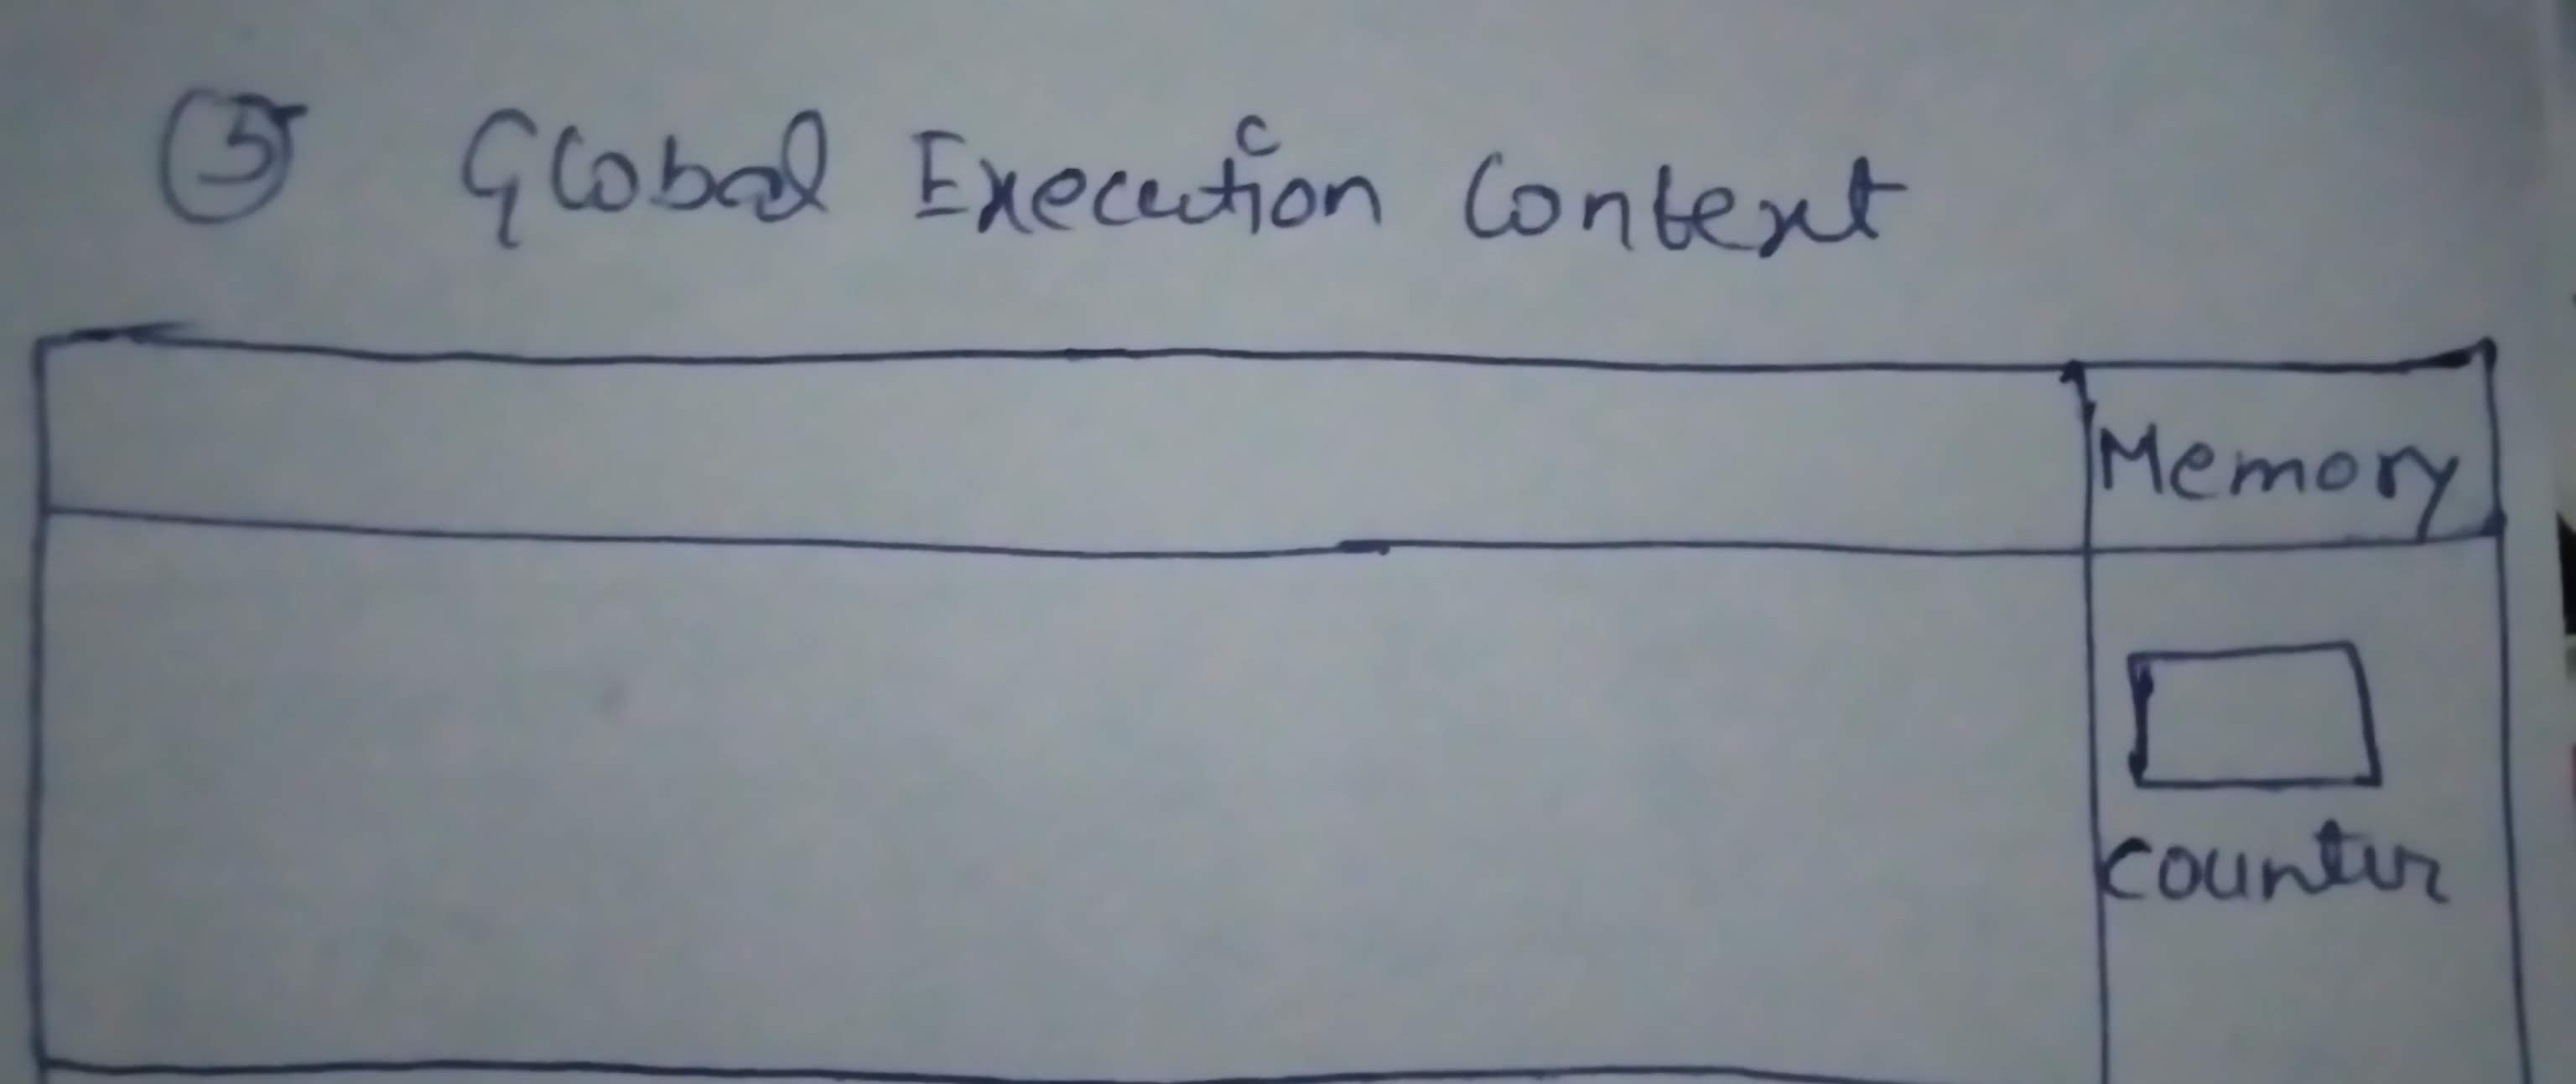 5 Global Execution Context
Memory
counter